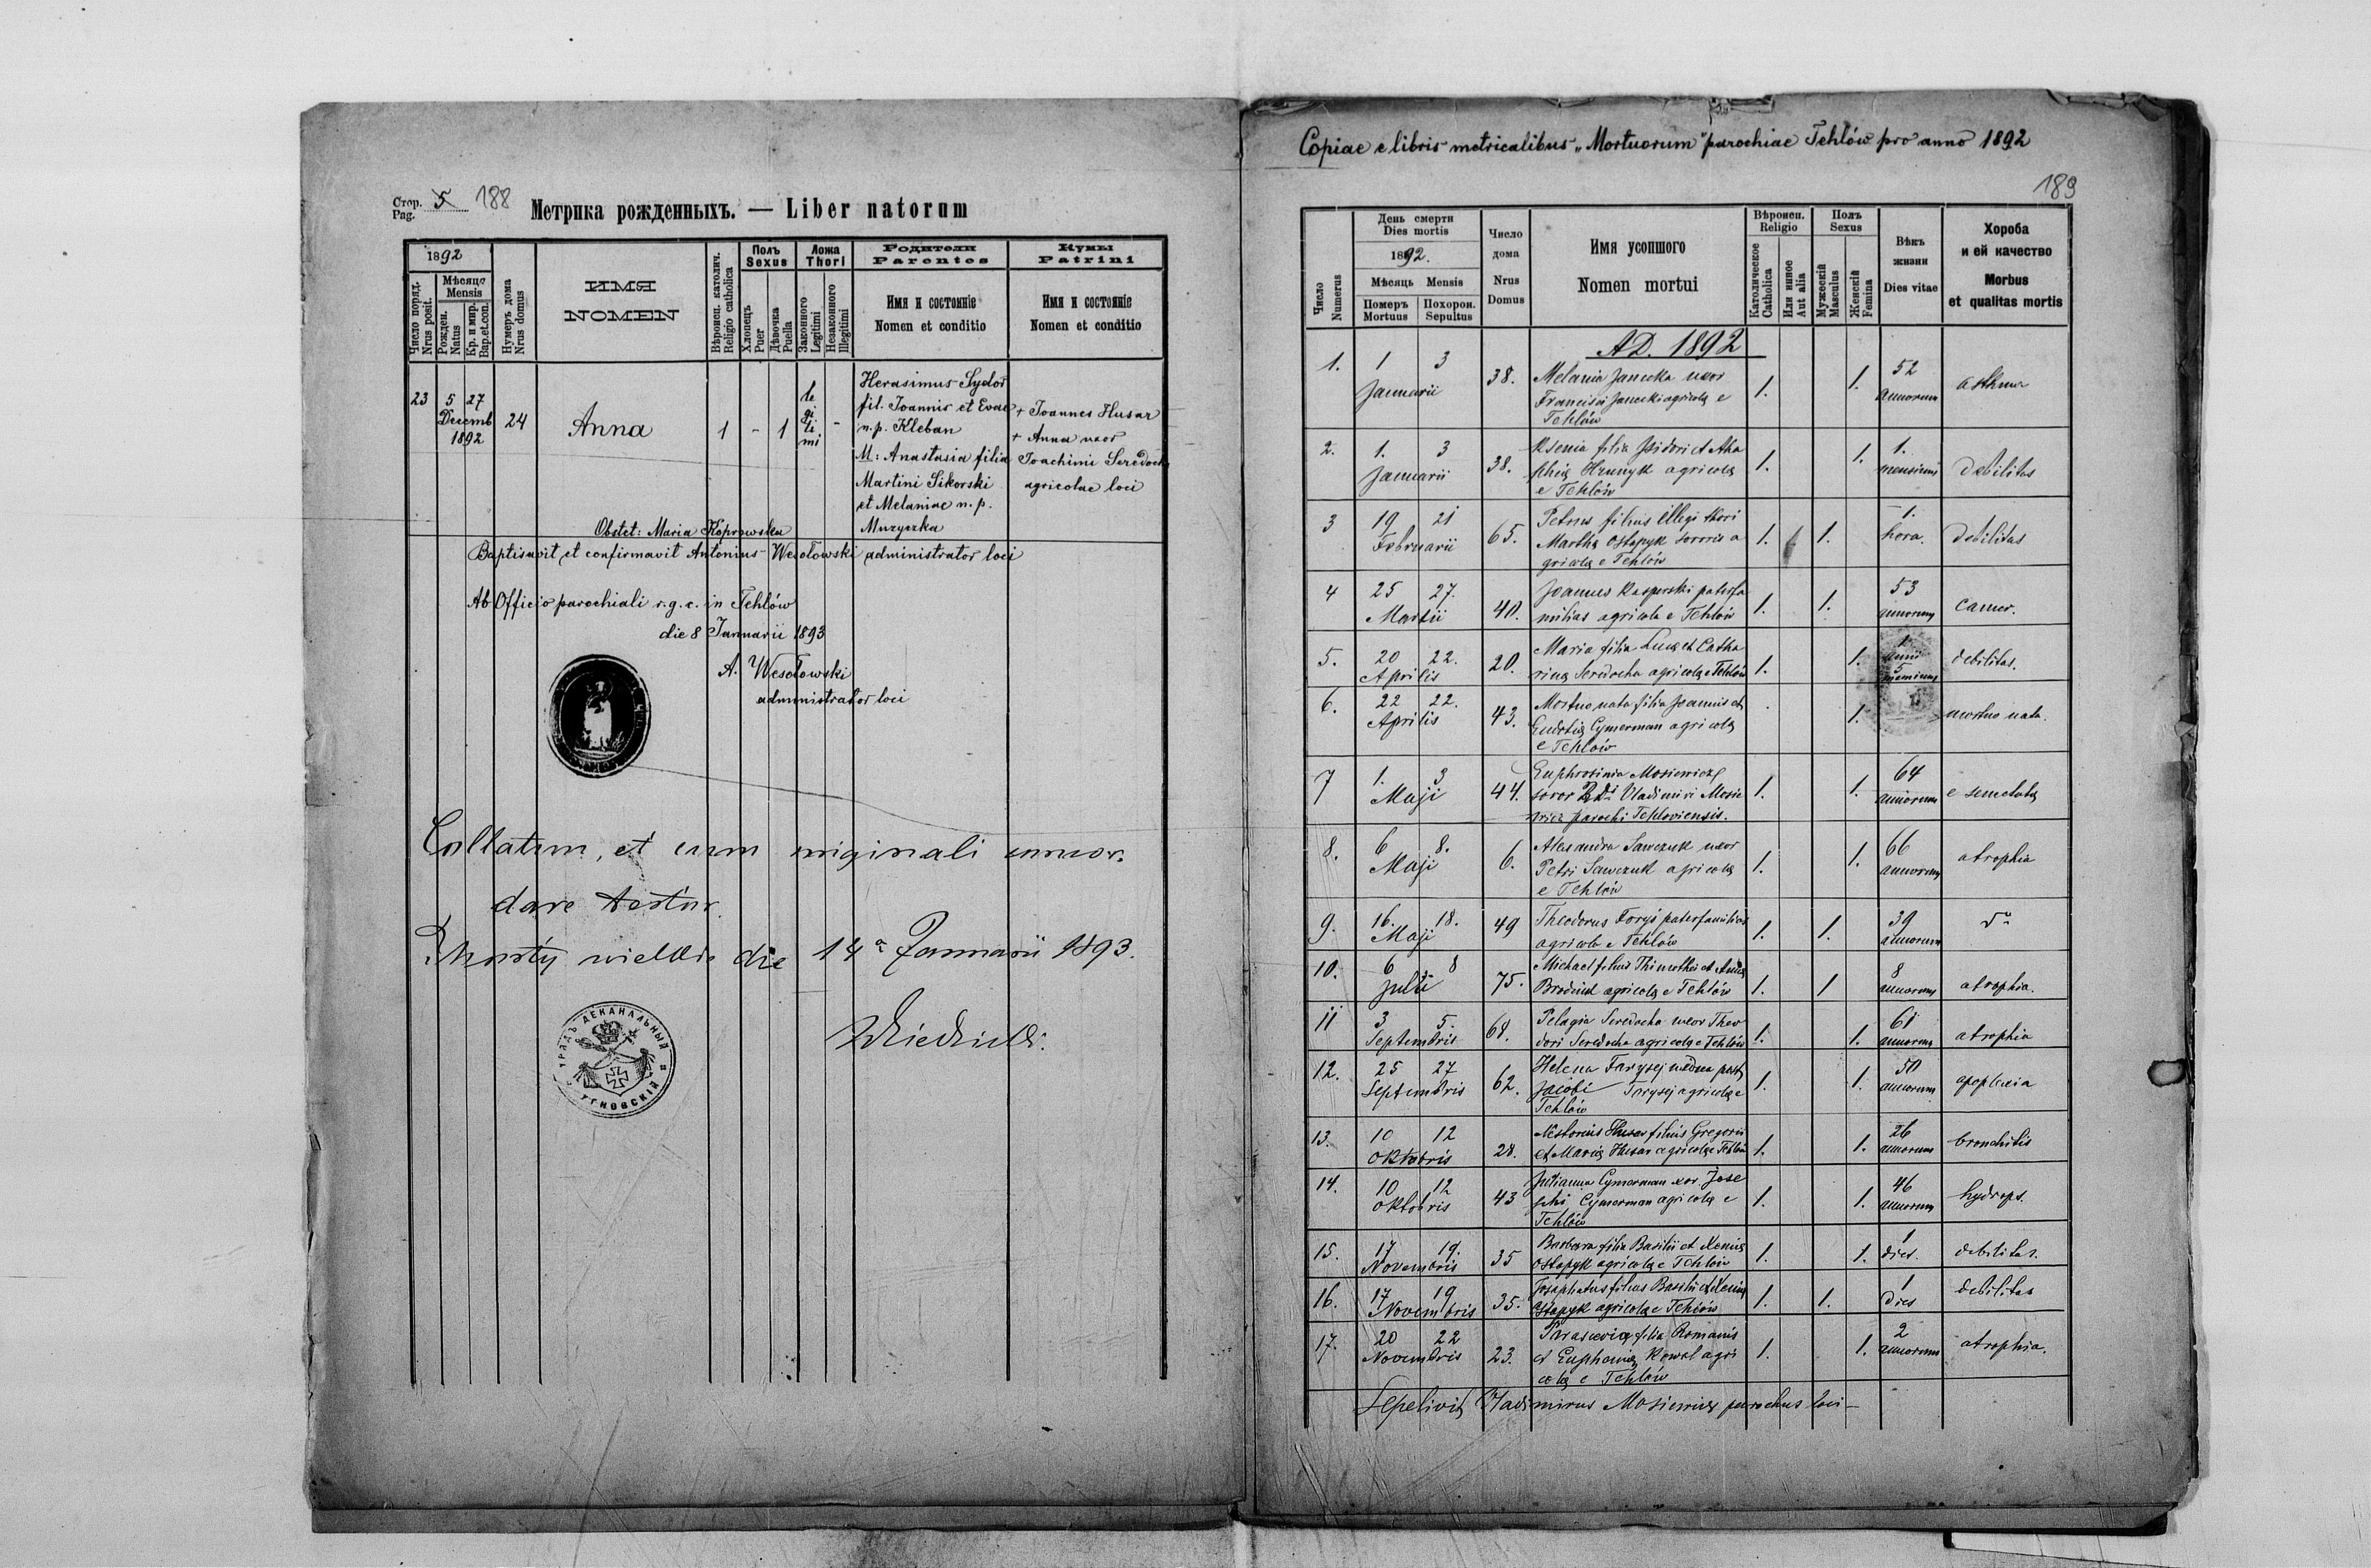 Стор. 5 188
Pag.
Метрика рожденныхъ. — Liber natorum
1892
Число поряд.
Nrus posit.
Мѣсяцъ
Mensis
Рожден.
Natus
Кр. и мир.
Bap.et.con.
Нумеръ дома
Nrus domus
ИМЯ
NOMEN
Вѣроисп. католич.
Religio catholica
Полъ
Sexus
Хлопецъ
Puer
Дѣвочка
Puella
Ложа
Thori
Законного
Legitimi
Незаконного
Illegitimi
Родители
Parentes
Имя и состояніе
Nomen et conditio
Кумы
Patrini
Имя и состояніе
Nomen et conditio
23 5 27 Decemb 1892 24 Anna 1 - 1 legitimi -
Herasimus Sydor
fil. Joannis et Evae
n.p. Kleban
M: Anastasia filia
Martini Sikorski
et Melaniae n. p.
Muzyczka
+ Joannes Husar
+ Anna uxor
Joachimi Seredocha
agricolae loci
Obstet: Maria Koprowska
Baptisavit et confirmavit Antonius Wesołowski administrator loci
Ab Officio parochiali r.g.c. in Tehlów
die 8 Januarii 1893
A. Wesołowski
administrator loci
Collatum, et cum originali concor
dare testor.
wielkie die 14a Januarii 1893.
УРЯДЪ ДЕКАНАЛЬНЫЙ УГНОВСКІЙ
Copiae e libris metricalibus „Mortuorum" parochiae Tehlów pro anno 1892
189
Число
Numerus
День смерти
Dies mortis
1892.
Мѣсяць Mensis
Померъ
Mortuus
Похорон.
Sepultus
Число
дома
Nrus
Domus
Имя усопшого
Nomen mortui
Вѣроисп.
Religio
Католическое
Catholica
Или инное
Aut alia
Полъ
Sexus
Мужескій
Masculus
Женскій
Femina
Вѣкъ
жизни
Dies vitae
Хороба
и ей качество
Morbus
et qualitas mortis
AD. 1892
1. 1 3 Januarii 38. Melania Janecka uxor
Francisci Janecki agricolę e
Tehlów 1. 1. 52 annorum asthma
2. 1. 3 Januarii 38. Ksenia filia Isidori et Atha
phię Hrunyk agricolę
e Tehlów 1. 1. 1. mensium debilitas
3 19 21 Februarii 65. Petrus filius illegi thori
Marthę Ostapyk sororis a
gricolę e Tehlów 1. 1. 1. hora. debilitas
4 25 27. Martii 40. Joannes Kasperski paterfa
milias agricola e Tehlów 1. 1. 53 annorum cancer.
5. 20 22. Aprilis 20. Maria filia Lucę et Catha
rinę Seredocha agricolę e Tehlów 1. 1. 1 anni 5 mensium debilitas.
6. 22 22. Aprilis 43. Mortuo nata filia Joannis et
Eudotię Cymerman agricolę
e Tehlów 1. mortuo nata.
7 1. 3 Maji 44. Euphrosinia Mosiewicz
soror Rdi Vladimiri Mosie
wicz parochi Tehloviensis. 1. 1. 64 annorum e senectute
8. 6 8. Maji 6. Alexandra Sawczuk uxor
Petri Sawczuk agricolę
e Tehlów 1. 1. 66 annorum atrophia
9. 16. 18. Maji 49 Theodorus Forys paterfamilias
agricola e Tehlów 1. 1. 39 annorum do
10. 6 8 Julii 75. Michael filius Thimothei et Annę
agricolę e Tehlów 1. 1 8 annorum atrophia.
11 3 5. Septembris 68. Pelagia Seredocha uxor Theo
dori Seredocha agricolę e Tehlów 1. 1. 61 annorum atrophia
12. 25 27 Septembris 62. Helena Farysej vidua post
Jacobi Farysej agricolę e
Tehlów 1. 1. 50 annorum apoplexia
13. 10 12 Oktobris 28. Nestorius Husar filius Gregorii
et Marię Husar agricolę e Tehlów 1. 1. 26 annorum bronchitis
14. 10 12 Oktobris 43 Julianna Cymerman uxor Jose
phi Cymerman agricolę e
Tehlów 1. 1. 46 annorum hydrops.
15. 17 19. Novembris 35 Barbara filia Basilii et Xenię
Ostapyk agricolę e Tehlów 1. 1. 1 dies. debilitas.
16. 17 19 Novembris 35. Josaphatus filius Basilii et Xenię
Ostapyk agricolę e Tehlów 1. 1. 1 dies debilitas
17. 20 22 Novembris 23. Parascevia filia Romanis
et Euphemię Kowal agri
colę e Tehlów 1. 1. 2 annorum atrophia.
Sepelivit Vladimirus Mosiewicz parochus loci —